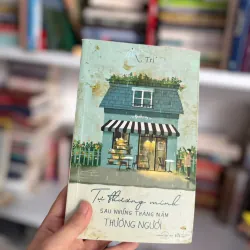 Tự thương mình
SAU NHỮNG THÁNG NĂM
THƯƠNG NGƯỜI